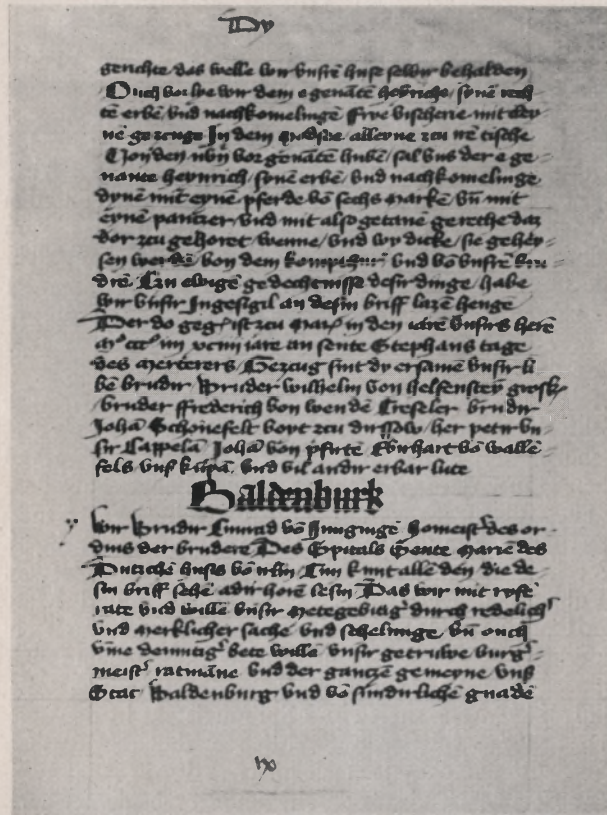 Dy
gerichte das welle wir vnsirē huse selbir behalden
Ouch vorlye wir dem egenātē heīriche synē rech
tē erbē vnd nachkomelingē frye visscherie mit cley
nē geczuge In dem alleyne zcu irē tische
von den vorgenātē hubē sal vns der ege
nante heynrich synē erbē vnd nachkomelinge
dynē mit eynē pferde vō sechs markē vn̄ mit
eynē panczer vnd mit alsogetanē gerethe daz
dor zcu gehoret wenne vnd wy dicke sie gehey
sen werdē von dem kompthur vnd vō vnsirē bru
drē Czu ewigē gedechtnisse desir dinge habe
wir vnsir Ingesigil an desin briff lazē henge
Der do gegebē ist zcu in den iarē vnsirs herē
iare an sente Stephans tage
des merterers Geczug sint dy ersamē vnsir li
bē brudir Bruder wilhelm von helfensteyn grosk
bruder ffrederich von wendē Treseler brudir
Johā Schonefelt voyt zcu dirssow her petir vn
sir Cappelā Johā von pfirte Ebirhart vō wallē
fels vnsir kūpā vnd vil andir erbar lute
Baldenburk
Wir Brudir Cunrad vō Jungingē homeister des or
dins der brudere Des Spitals Sente Mariē des
Dutzchē husis vō irlm̄ Tun kunt allē den die de
sin briff sehē adir horē lesin Das wir mit ryfē
rate vnd willē vnsir metegebitiger durch redelich
vnd merklicher sache vnd schelunge vn̄ ouch
vm̄e demutiger bete wille vnsir getruwe burger
meister ratmāne vnd der gantczē gemeyne vnsir
Stat Baldenburg vnd vō sundirlichē gnadē
ix